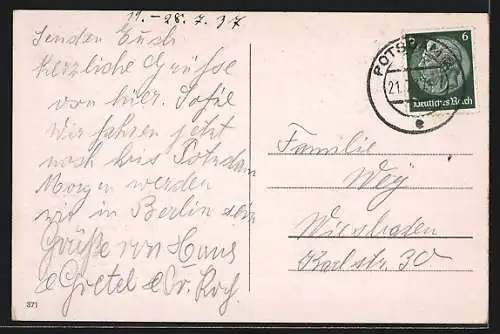 11. - 28. 7. 37
Senden Euch
herzliche Grüsse
von hier. Sofie
Wir fahren jetzt
noch bis Potsdam
Morgen werden
wir in Berlin sein
Grüße von Hans
& Gretel &
371
POTSDAM
21.
6
Deutsches Reich
Familie
Wey
Wiesbaden
Karlstr. 30